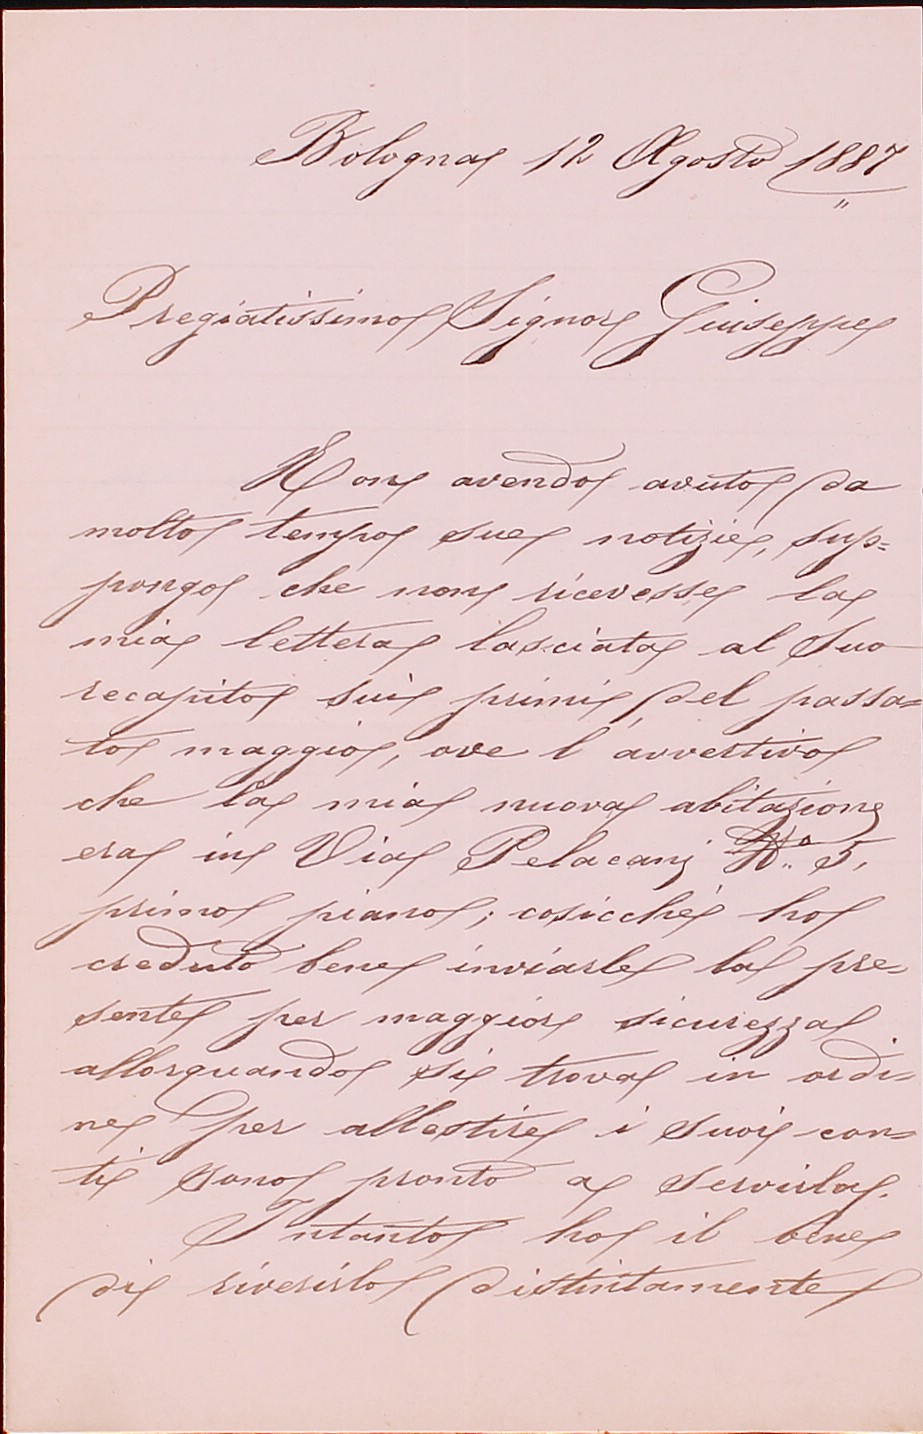 Bologna 12 Agosto 1887
Pregiatissimo Signor Giuseppe
Non avendo avuto da
molto tempo sue notizie, sup=
pongo che non ricevesse la
mia lettera lasciata al Suo
recapito sui primi del passa=
to maggio, ove l'avvertivo
che la mia nuova abitazione
era in Via Pelacani N.° 5,
primo piano; cosicché ho
creduto bene inviarle la pre=
sente per maggior sicurezza
allorquando si trova in ordi=
ne per allestire i suoi con=
ti sono pronto a servirla.
Intanto ho il bene
di riverirlo distintamente